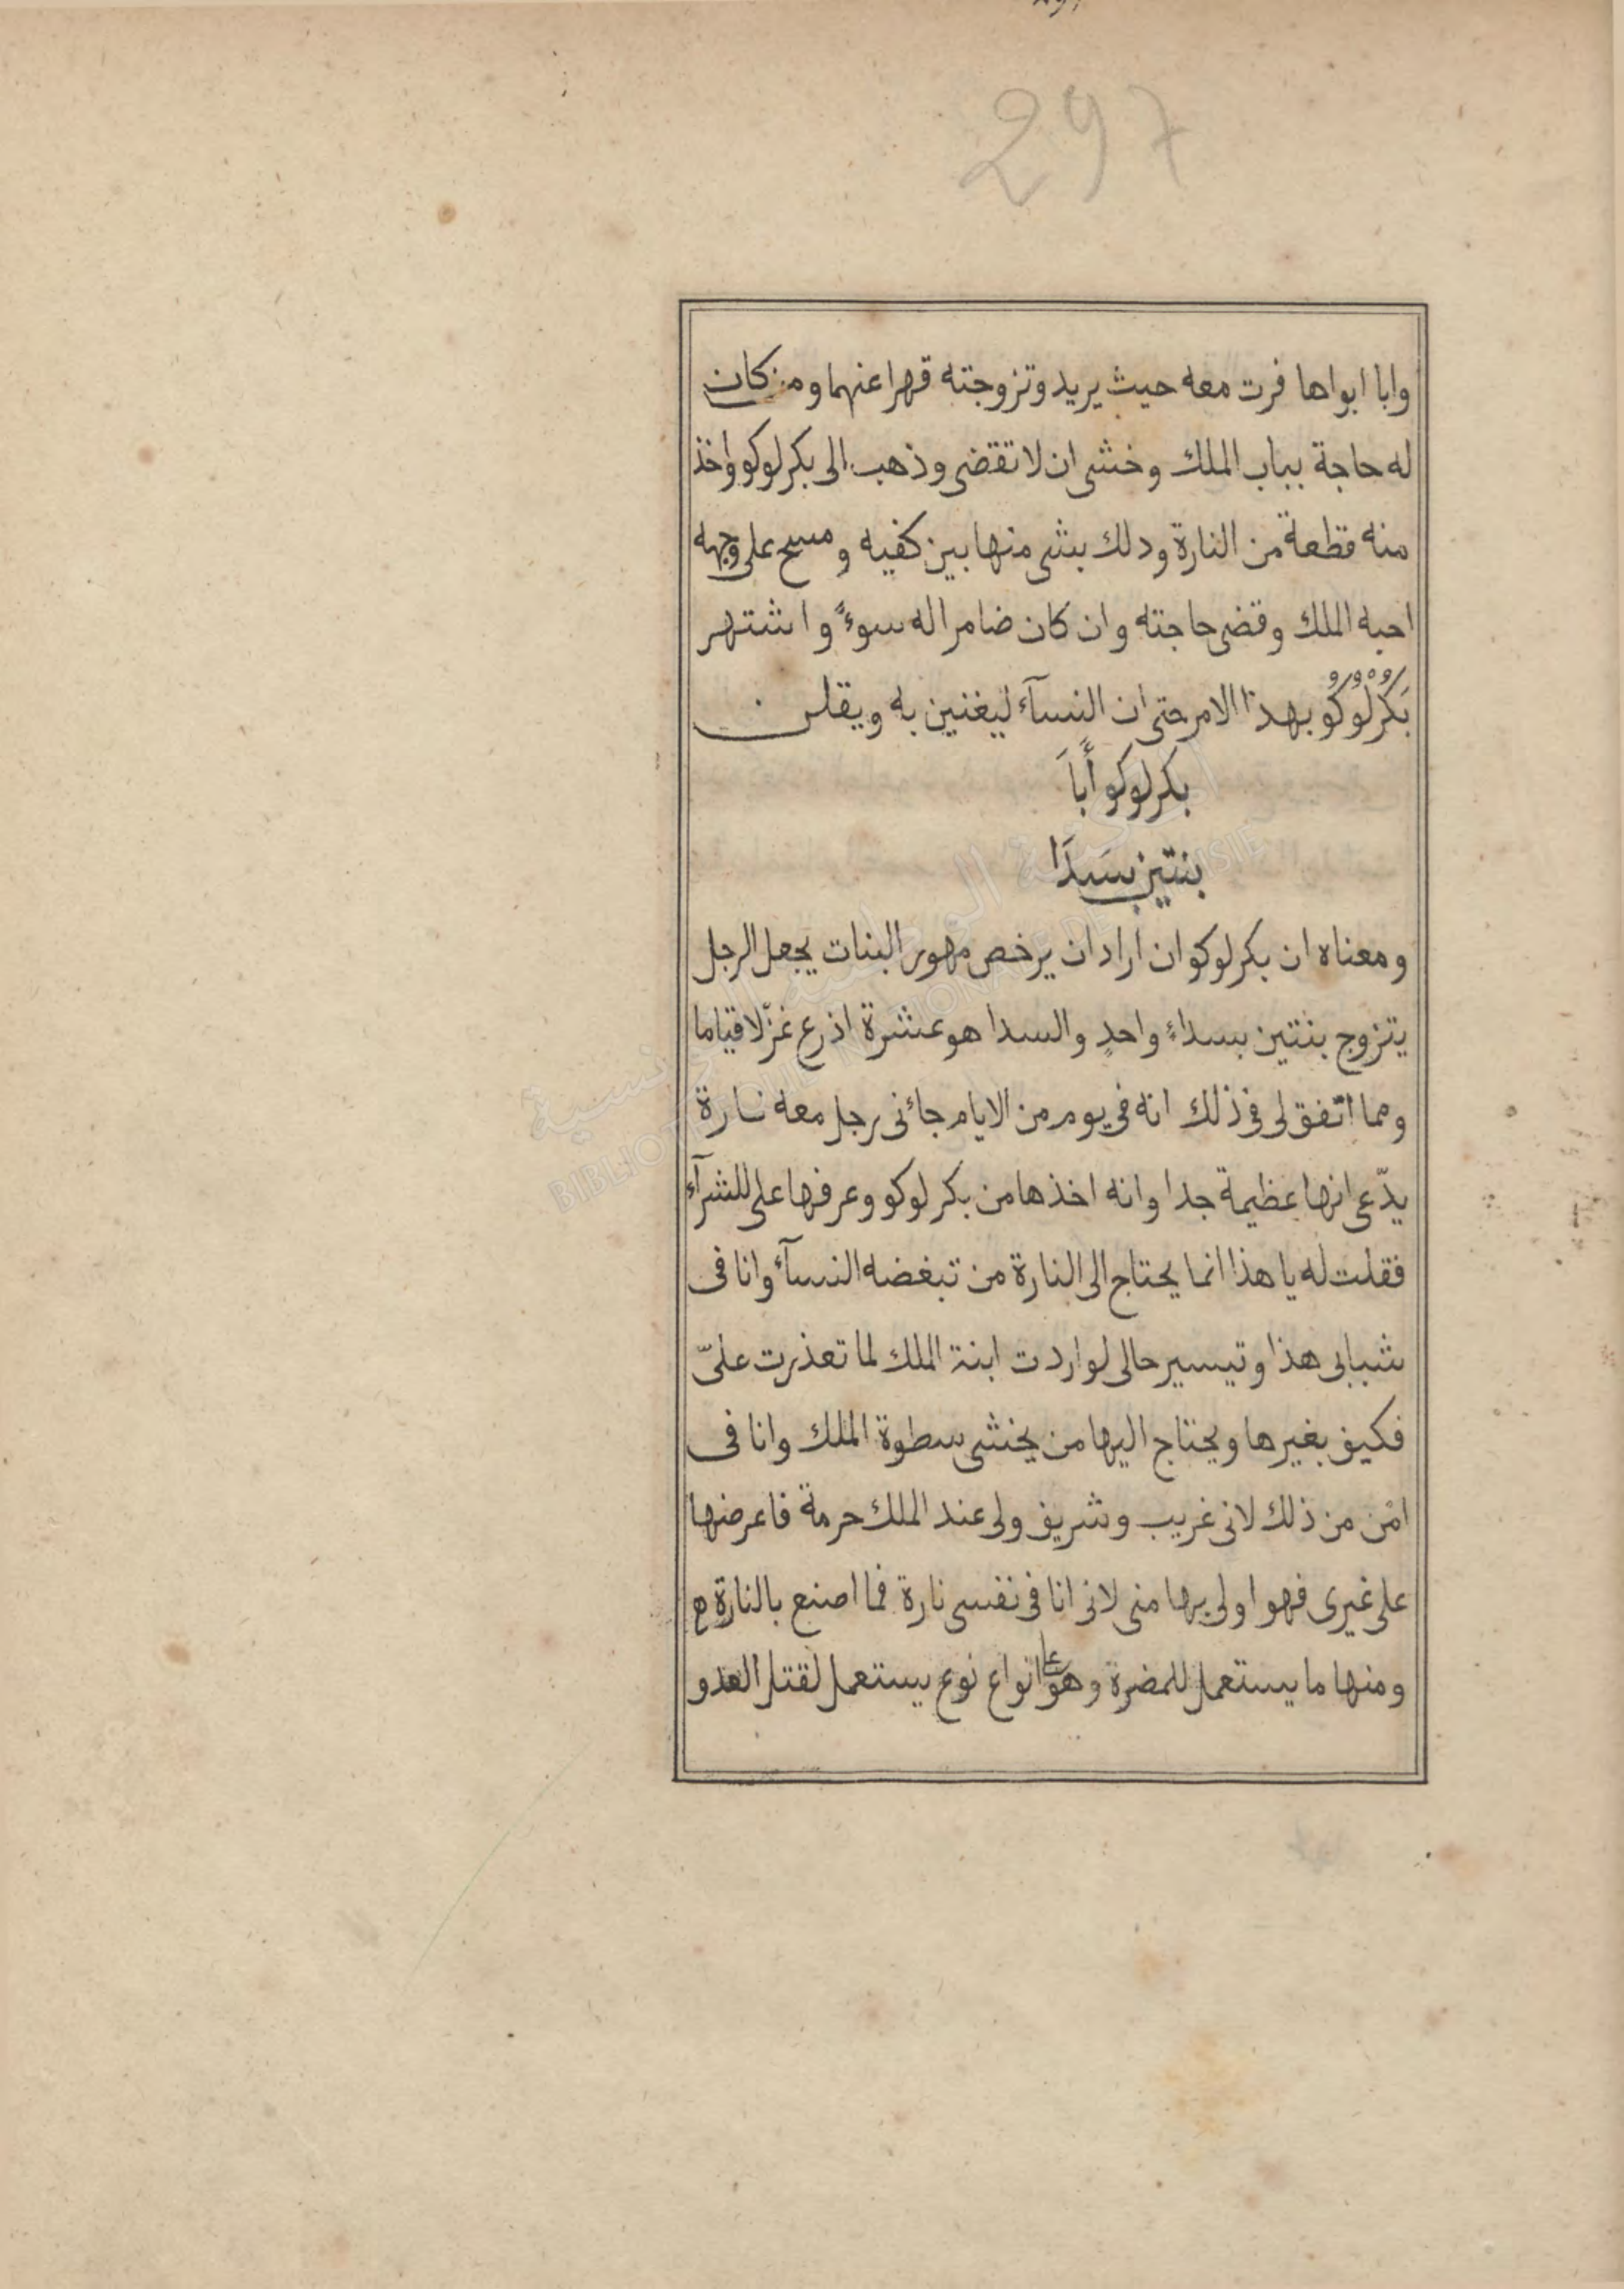 297
وابا ابواها فرت معه حيث يريد وتزوجته قهرا عنهما ومن كان
له حاجة بباب الملك وخشى ان لا تقضى وذهب الى بكرلوكو واخذ
منه قطعة من النارة ودلك بشى منها بين كفيه ومسح على وجهه
احبه الملك وقضى حاجته وان كان ضامرا له سوءً واشتهر
بَكُرْلُوُكُو بهذا الامر حتى ان النسآء ليغنين به ويقلن
بكرلوكو أَباَ
بنتين بسَدَا
ومعناه ان بكرلوكو ان اراد ان يرخص مهور البنات يجعل الرجل
يتزوج بنتين بسداءٍ واحدٍ والسدا هو عشرة اذرع غزّلا قياما
ومما اتفق لى فى ذلك انه فى يوم من الايام جاءنى رجل معه نارة
يدّعى انها عظيمة جدا وانه اخذها من بكرلوكو وعرفها على للشرآء
فقلت له يا هذا انما يحتاج الى النارة من تبغضه النسآء وانا فى
شبابى هذا وتيسير حالى لو اردت ابنة الملك لما تعذرت علىّ
فكيف بغيرها ويحتاج اليها من يخشى سطوة الملك وانا فى
امْن من ذلك لانى غريب وشريف ولى عند الملك حرمة فاعرضها
على غيرى فهو اولى بها منى لانى انا فى نفسى نارة فما اصنع بالنارة ه
ومنها ما يستعمل للمضرة وهو على انواع نوع يستعمل لقتل العدو
المكتبة الوطنية التونسية
BIBLIOTHEQUE NATIONALE DE TUNISIE